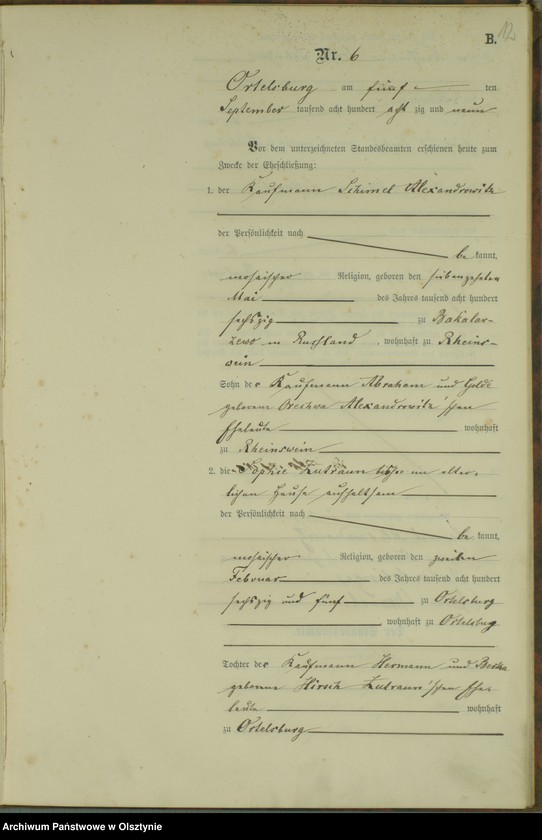 B. 12
Nr. 6
Ortelsburg am fünf ten
September tausend acht hundert acht zig und neun
Vor dem unterzeichneten Standesbeamten erschienen heute zum
Zwecke der Eheschließung:
1. der Kaufmann Schimel Alexandrowitz
der Persönlichkeit nach
be kannt,
mosaischer Religion, geboren den siebenzehnten
Mai des Jahres tausend acht hundert
sechszig zu Bakalar-
zewo in Russland, wohnhaft zu Rheins-
wein
Sohn des Kaufmann Abraham und Golde
geborene Alexandrowitz'schen
Eheleute wohnhaft
zu Rheinswein
2. die Sophie Lutraun im elter-
lichen Hause aufhaltsam
der Persönlichkeit nach
be kannt,
mosaischer Religion, geboren den zweiten
Februar des Jahres tausend acht hundert
sechszig und fünf zu Ortelsburg
wohnhaft zu Ortelsburg
Tochter des Kaufmann Hermann und
geborene Hirsch Lutraun'schen Ehe-
leute wohnhaft
zu Ortelsburg
Archiwum Państwowe w Olsztynie